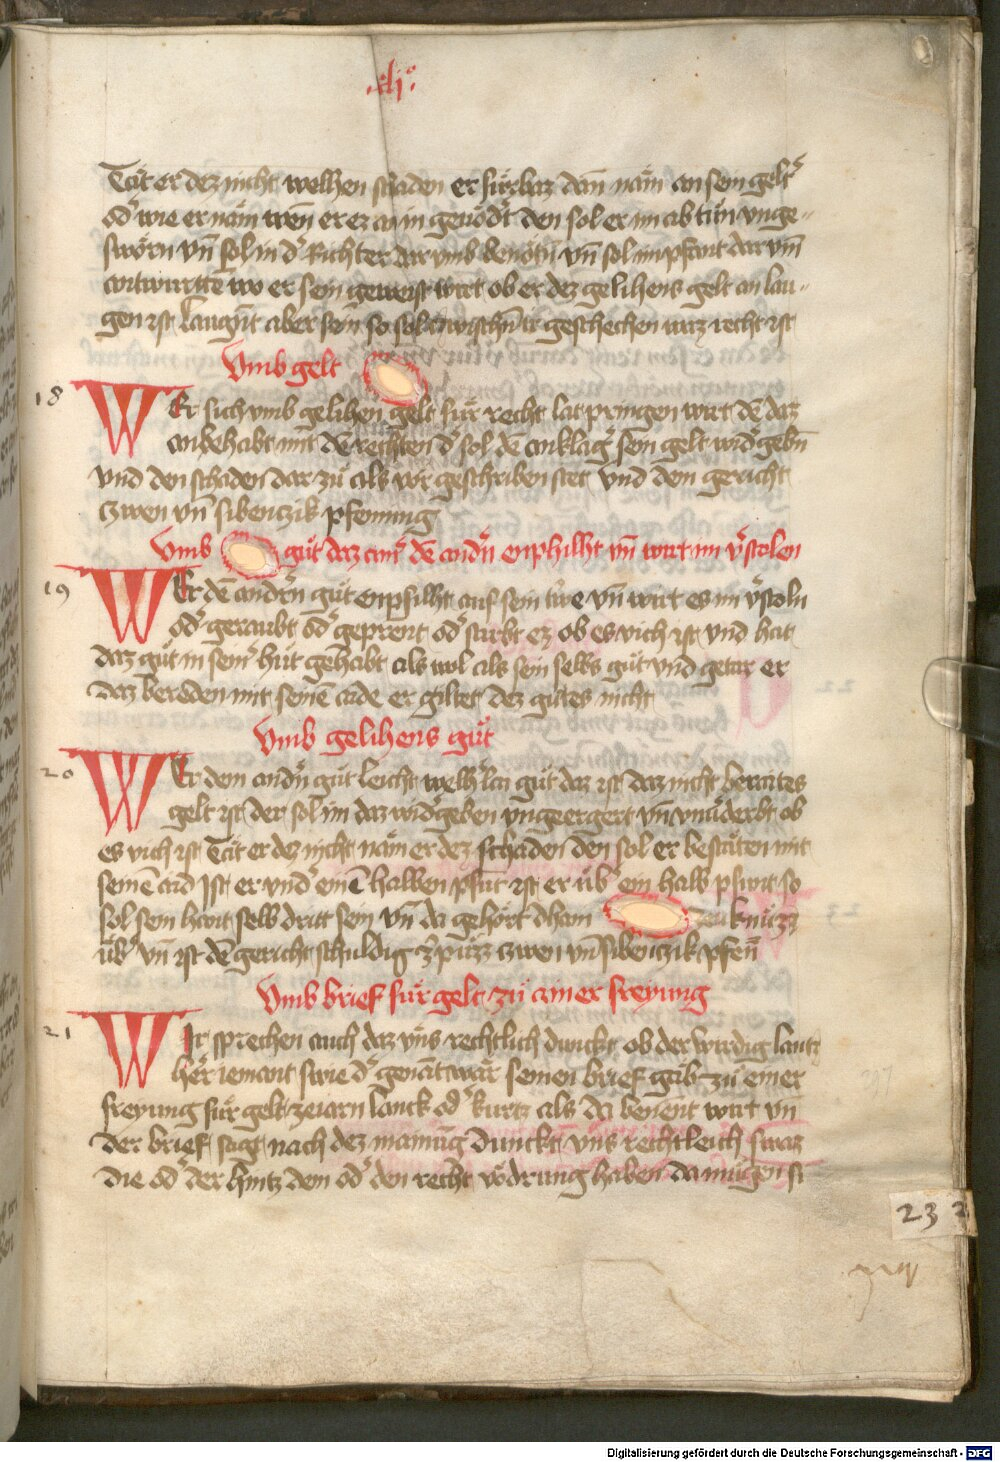 .xlj°.
Tät er dez nicht welhen schaden er fürbaz dan näm an sein gelt
od' wie er näm wen er ez an in geuodt den sol er im ab tün vnge=
sworn vn̄ sol in d' Richter dar vmb benötn̄ vn̄ sol im pfant dar vm̄
antwurttē wo er sein geweist wirt ob er dez gelihens gelt an lau=
gen ist Laugn̄t aber sein so sol zwischn̄ ir geschechen waz recht ist
Vmb gelt
18 WEr sich vmb gelihen gelt für recht lat pringen wirt dē daz
anbehabt mit dē rechten d' sol dē anklag' sein gelt wid'gebn̄
vnd den schaden dar zü als vor geschriben stet vnd dem gericht
zwen vn̄ sibenczik pfenning
Vmb güt daz ain' dē andn̄ enphilht vn̄ wirt im v'stolen
19 WEr dē andern güt enpfilht auf sein trwe vn̄ wirt es im v'stoln
od' geraubt od' geprent od' stirbt ez ob es vich ist vnd hat
daz güt in sein' hüt gehabt als wol als sein selbs güt vnd getar er
daz bereden mit seinē aide er giltet dez gütes nicht
Vmb gelihens güt
20 WEr dem andn̄ güt leicht welh'lay güt daz ist daz nicht beraites
gelt ist der sol im daz wid'geben vngeergert vn̄ vnuerderbt ob
es vich ist Tät er dez nicht näm er dez schaden den sol er bestäten mit
seinē aid Ist er vnd' einē halben pfunt ist er üb' ein halb pfunt so
sol sein hant selb dritt sein vn̄ da gehört dhain zeuknüzz
üb' vn̄ ist dē gericht schuldig ze püzz zwen vn̄ sibenczik pfen̄
Vmb brief für gelt zü ainer freyung
21 WIr sprechen auch daz vns rechtlich dunckt ob der wirdig lantz
her iemant swie d' genāt wär seinen brief gäb zü einer
freyung für gelt ze iarn lanck od' kurtz als da benent wirt vn̄
der brief sagt nach dez mainūg dunckt vns rechtleich swaz
die od' der hintz dem od' den recht vodrung haben da mügen si
232